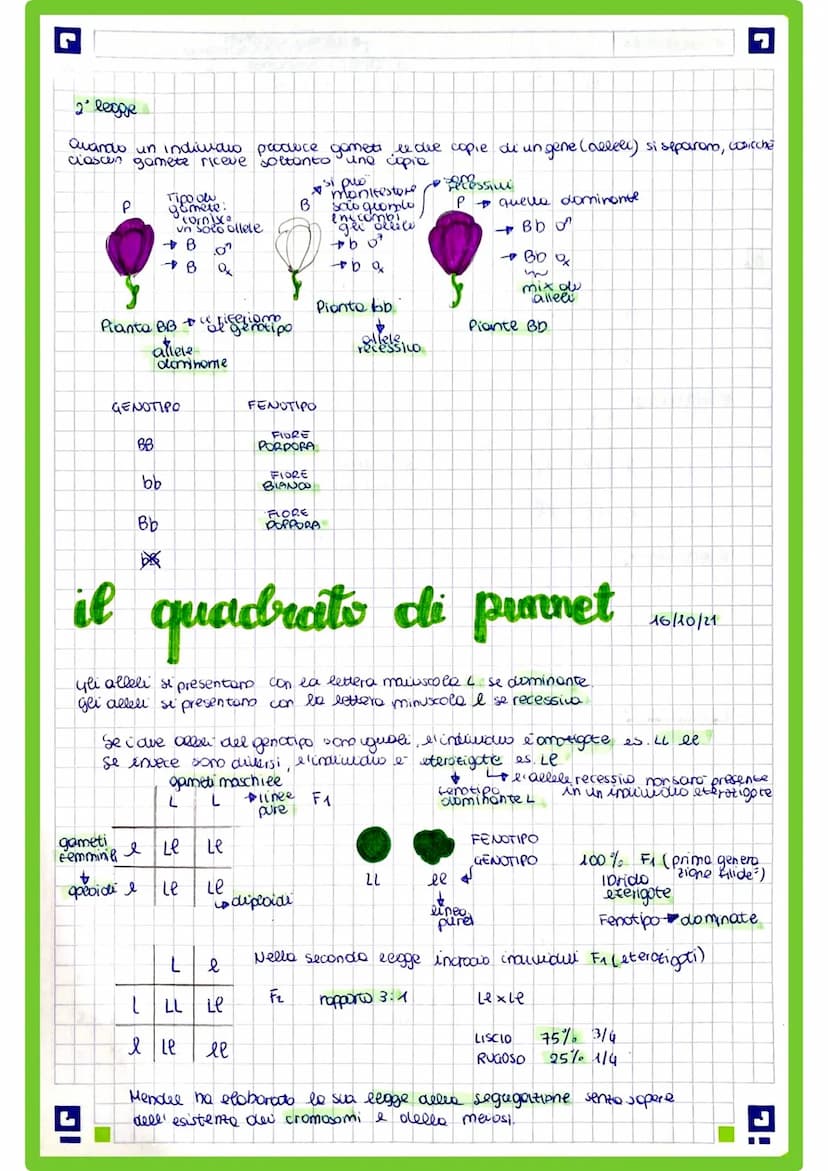 2ª legge
Quando un individuo produce gameti le due copie di un gene (alleli) si separano, cosicché
ciascun gamete riceve soltanto una copia
P
Tipo di
gamete:
fornisce
un solo allele
→ B ♂
→ B ♀
Pianta BB → ci riferiamo
al genotipo
allele
dominante
B
si può
manifestare
solo quando
entrambi
gli alleli
sono
recessivi
→ b ♂
→ b ♀
Pianta bb
allele
recessivo
P → quella dominante
→ Bb ♂
→ Bb ♀
mix di
alleli
Piante Bb
GENOTIPO FENOTIPO
BB FIORE
PORPORA
bb FIORE
BIANCO
Bb FIORE
PORPORA
il quadrato di punnet 16/10/21
gli alleli si presentano con la lettera maiuscola L se dominante.
gli alleli si presentano con la lettera minuscola l se recessivo
Se i due alleli del genotipo sono uguali, l'individuo è omotigote es. LL ll
Se invece sono diversi, l'individuo è eterotigote es. Ll
genotipo
dominante L
l'allele recessivo non sarà presente
in un individuo eterotigote
gameti maschili
L L → linee
pure
F1
gameti
femminili
l Ll Ll
aploidi l Ll Ll
→ diploidi
LL ll
FENOTIPO
GENOTIPO
linee
pure
100% F1 (prima genera
zione filiale)
Ibrido
eterigote
Fenotipo → dominate
L l
L LL Ll
l Ll ll
Nella seconda legge incrocio individui F1 (eterotigoti)
F2 rapporto 3:1 Ll x Ll
LISCIO 75% 3/4
RUGOSO 25% 1/4
Mendel ha elaborato la sua legge della segregazione senza sapere
dell'esistenza dei cromosomi e della meiosi.